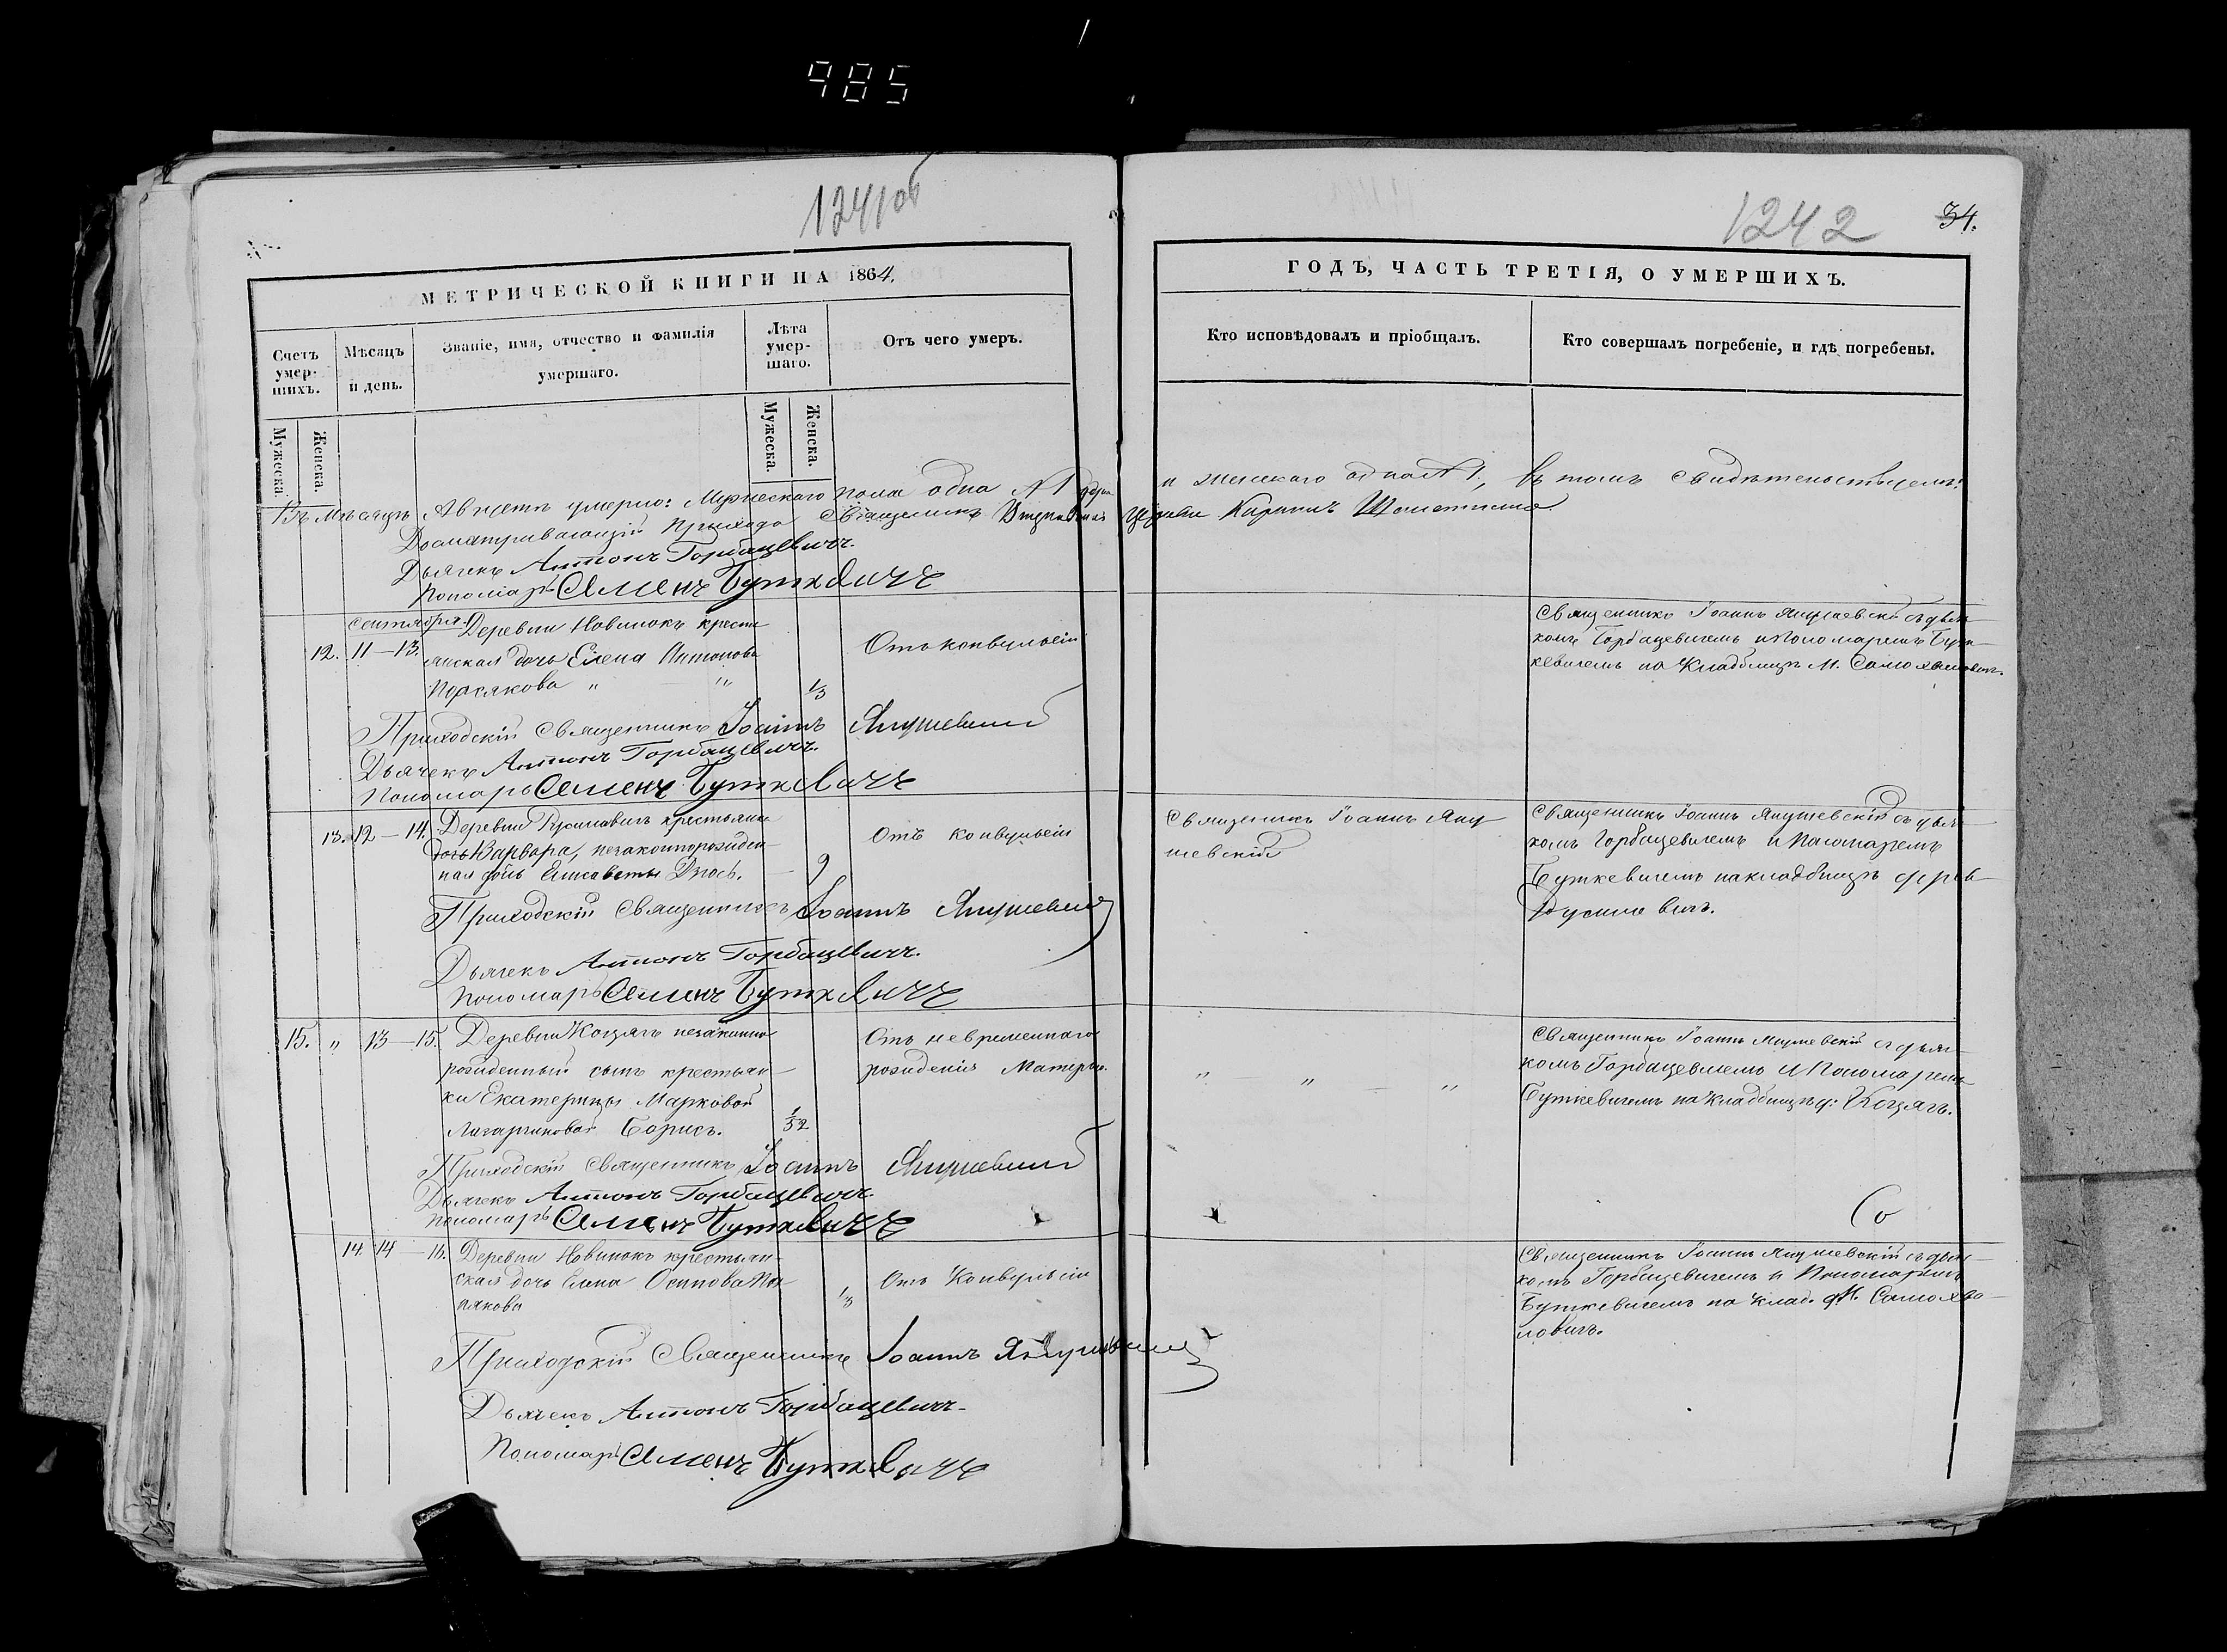 985
1241об
МЕТРИЧЕСКОЙ КНИГИ НА 1864.
Счетъ умер-шихъ.
Мѣсяцъ и день.
Званіе, имя, отчество и фамилія умершаго.
Лѣта умер-шаго.
Отъ чего умеръ.
Мужеска.
Женска.
Мужеска.
Женска.
Въ мѣсяцѣ Августѣ умерло: Мужескаго пола одна №1 душа
Досматривающій Прихода Священникъ
Дьячекъ Антонъ Горбацевичъ.
Пономарь Семенъ Буткевичъ
Сентября
12. 11–13. Деревни Новинокъ крестья-
нская дочь Елена Антонова
Отъ конвульсіи
1/3
Приходскій Священникъ Іоаннъ Янушевскій
Дьячекъ Антонъ Горбацевичъ.
Пономарь Семенъ Буткевичъ
13. 12–14. Деревни Русиновичъ крестьянки
дочь Варвара, незаконнорожден-
ная дочь Елисаветы
9
Отъ конвульсіи
Приходскій Священникъ Іоаннъ Янушевскій
Дьячекъ Антонъ Горбацевичъ.
Пономарь Семенъ Буткевичъ
15. " 13–15. Деревни незаконно
рожденный сынъ крестьян-
ки Екатерины Марковой
Борисъ.
1/52
Отъ невременнаго
рожденія Матерью.
Приходскій Священникъ Іоаннъ Янушевскій
Дьячекъ Антонъ Горбацевичъ.
Пономарь Семенъ Буткевичъ
14. 14–16. Деревни Новинокъ крестьян-
ская дочь Елена Осипова
1/3
Отъ Конвульсіи
Приходскій Священникъ Іоаннъ Янушевскій
Дьячекъ Антонъ Горбацевичъ.
Пономарь Семенъ Буткевичъ
1242
34.
ГОДЪ, ЧАСТЬ ТРЕТІЯ, О УМЕРШИХЪ.
Кто исповѣдовалъ и пріобщалъ.
Кто совершалъ погребеніе, и гдѣ погребены.
и женскаго одна №1., въ томъ свидѣтельствуемъ:
церкви
Священникъ Іоаннъ Янушевскій съ дьяч-
комъ Горбацевичемъ и Пономаремъ Бут-
кевичемъ на кладбищѣ М.
Священникъ Іоаннъ Яну-
шевскій
Священникъ Іоаннъ Янушевскій съ дьяч-
комъ Горбацевичемъ и Пономаремъ
Буткевичемъ на кладбищѣ дерев-
" " "
Священникъ Іоаннъ Янушевскій съ дьяч-
комъ Горбацевичемъ и Пономаремъ
Буткевичемъ на кладбищѣ д:
Священникъ Іоаннъ Янушевскій съ дьяч-
комъ Горбацевичемъ и Пономаремъ
Буткевичемъ на клад.